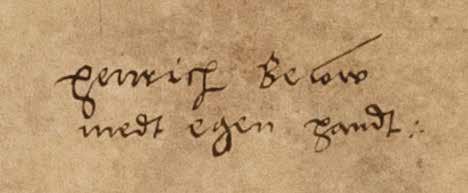 Henrich Below
medt egen handt